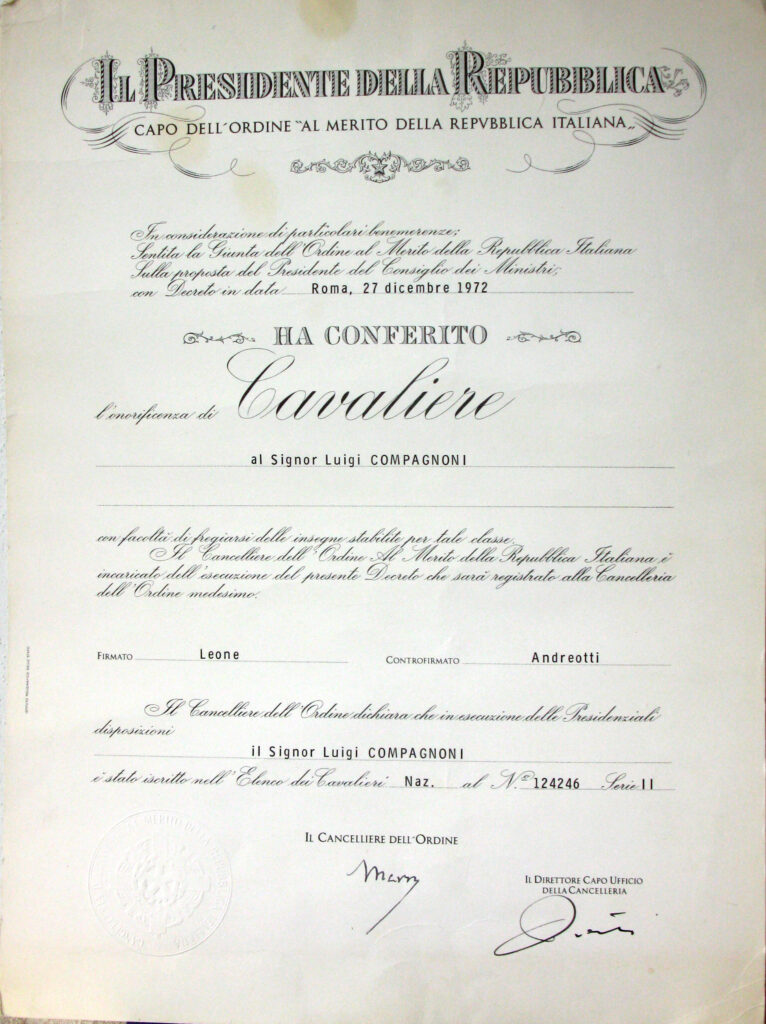 IL PRESIDENTE DELLA REPUBBLICA
CAPO DELL'ORDINE "AL MERITO DELLA REPVBBLICA ITALIANA„
In considerazione di particolari benemerenze;
Sentita la Giunta dell'Ordine al Merito della Repubblica Italiana
Sulla proposta del Presidente del Consiglio dei Ministri;
con Decreto in data Roma, 27 dicembre 1972
HA CONFERITO
l'onorificenza di Cavaliere
al Signor Luigi COMPAGNONI
con facoltà di fregiarsi delle insegne stabilite per tale classe.
Il Cancelliere dell'Ordine Al Merito della Repubblica Italiana è
incaricato dell'esecuzione del presente Decreto che sarà registrato alla Cancelleria
dell'Ordine medesimo.
FIRMATO Leone CONTROFIRMATO Andreotti
Il Cancelliere dell'Ordine dichiara che in esecuzione delle Presidenziali
disposizioni
il Signor Luigi COMPAGNONI
è stato iscritto nell'Elenco dei Cavalieri Naz. al N.º 124246 Serie II
IL CANCELLIERE DELL'ORDINE
IL DIRETTORE CAPO UFFICIO
DELLA CANCELLERIA